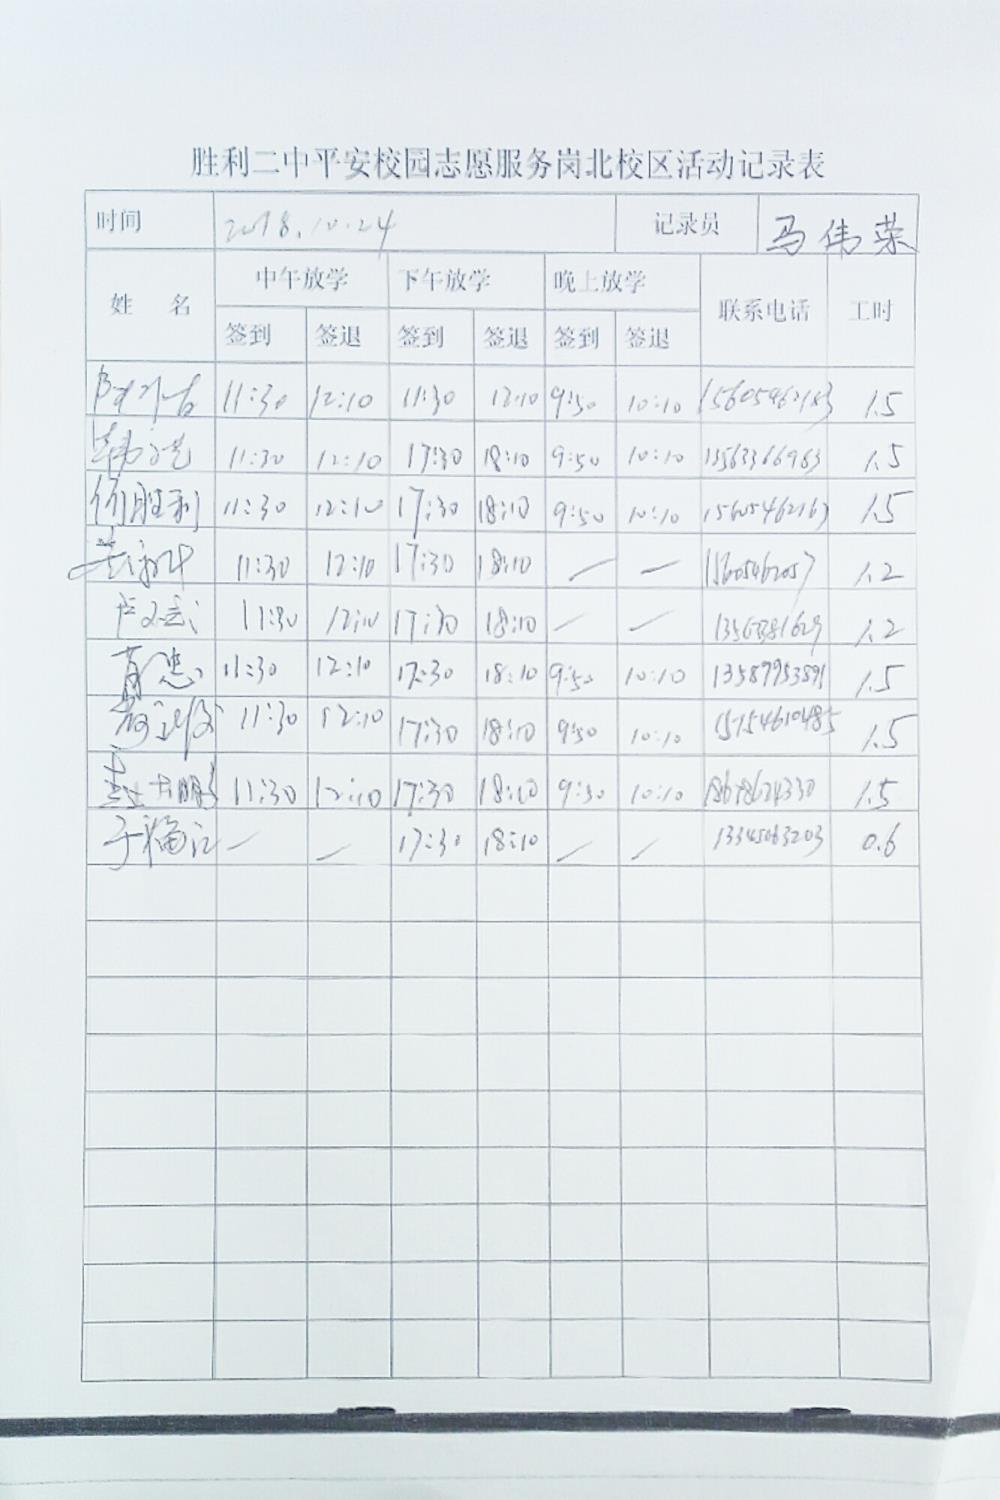 胜利二中平安校园志愿服务岗北校区活动记录表
时间 2018.10.24 记录员 马伟荣
姓 名 中午放学 下午放学 晚上放学 联系电话 工时
签到 签退 签到 签退 签到 签退
11:30 12:10 11:30 12:10 9:50 10:10 1.5
11:30 12:10 17:30 18:10 9:50 10:10 13563366983 1.5
胜利 11:30 12:10 17:30 18:10 9:50 10:10 15605462163 1.5
11:30 12:10 17:30 18:10 — — 15605462057 1.2
11:30 12:10 17:30 18:10 — — 1.2
11:30 12:10 17:30 18:10 9:50 10:10 13587953891 1.5
11:30 12:10 17:30 18:10 9:50 10:10 15754610485 1.5
11:30 12:10 17:30 18:10 9:50 10:10 1.5
于福江 — — 17:30 18:10 — — 13345063203 0.6